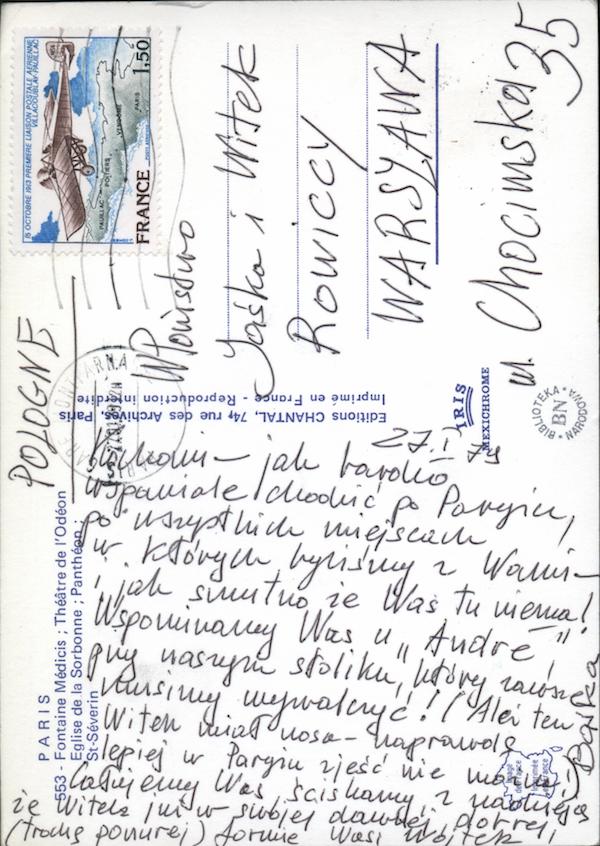 15 OCTOBRE 1913 PREMIERE LIAISON POSTALE AERIENNE
VILLACOUBLAY-PAUILLAC
1,50
PARIS
VENDOME
POITIERS
PAUILLAC
POSTE AERIENNE
FRANCE
POLOGNE
WPaństwo
Jaśka i Witek
Rowiccy
WARSZAWA
ul. Chocimska 35
Editions CHANTAL, 74, rue des Archives, Paris
Imprimé en France - Reproduction interdite
IRIS
MEXICHROME
BIBLIOTEKA NARODOWA
BN
PARIS
553 - Fontaine Médicis ; Théâtre de l'Odéon
Eglise de la Sorbonne ; Panthéon ;
St-Séverin
27.I 79
Kochani - jak bardzo
wspaniale chodzić po Paryżu,
po wszystkich miejscach
w których byliśmy z Wami -
i jak smutno że Was tu niema!
Wspominamy Was u "André",
przy naszym stoliku, który zawsze
musimy wywalczyć! (Ależ ten
Witek miał nosa - naprawdę
lepiej w Paryżu zjeść nie można!)
Całujemy Was, ściskamy, z nadzieją
że Witek już w swojej dawnej, dobrej,
(trochę ponurej) formie Wasi Wojtek i
Baśka